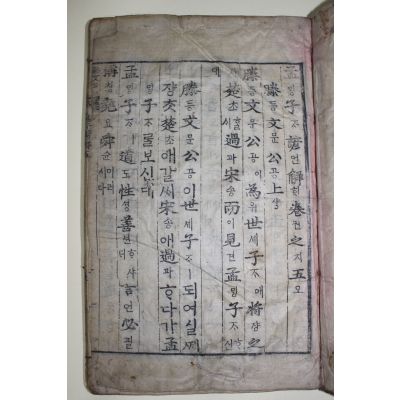 孟밍子ᄌᆞ諺언解ᄒᆡ卷권之지五오
滕등文문公공上샹
滕등文문公공이爲위世셰子ᄌᆞ애將쟝之지
楚초ᄒᆞᆯᄉᆡ過과宋송而이見견孟밍子ᄌᆞᄒᆞ신
대
滕등文문公공이世셰子ᄌᆞㅣ되여실ᄶᅦ
쟝ᄎᆞᆺ楚초애갈ᄉᆡ宋송애過과ᄒᆞ다가孟
밍子ᄌᆞᄅᆞᆯ보신대
孟밍子ᄌᆞㅣ道도性셩善션ᄒᆞ샤ᄃᆡ言언必필
稱칭堯요舜슌이러시다